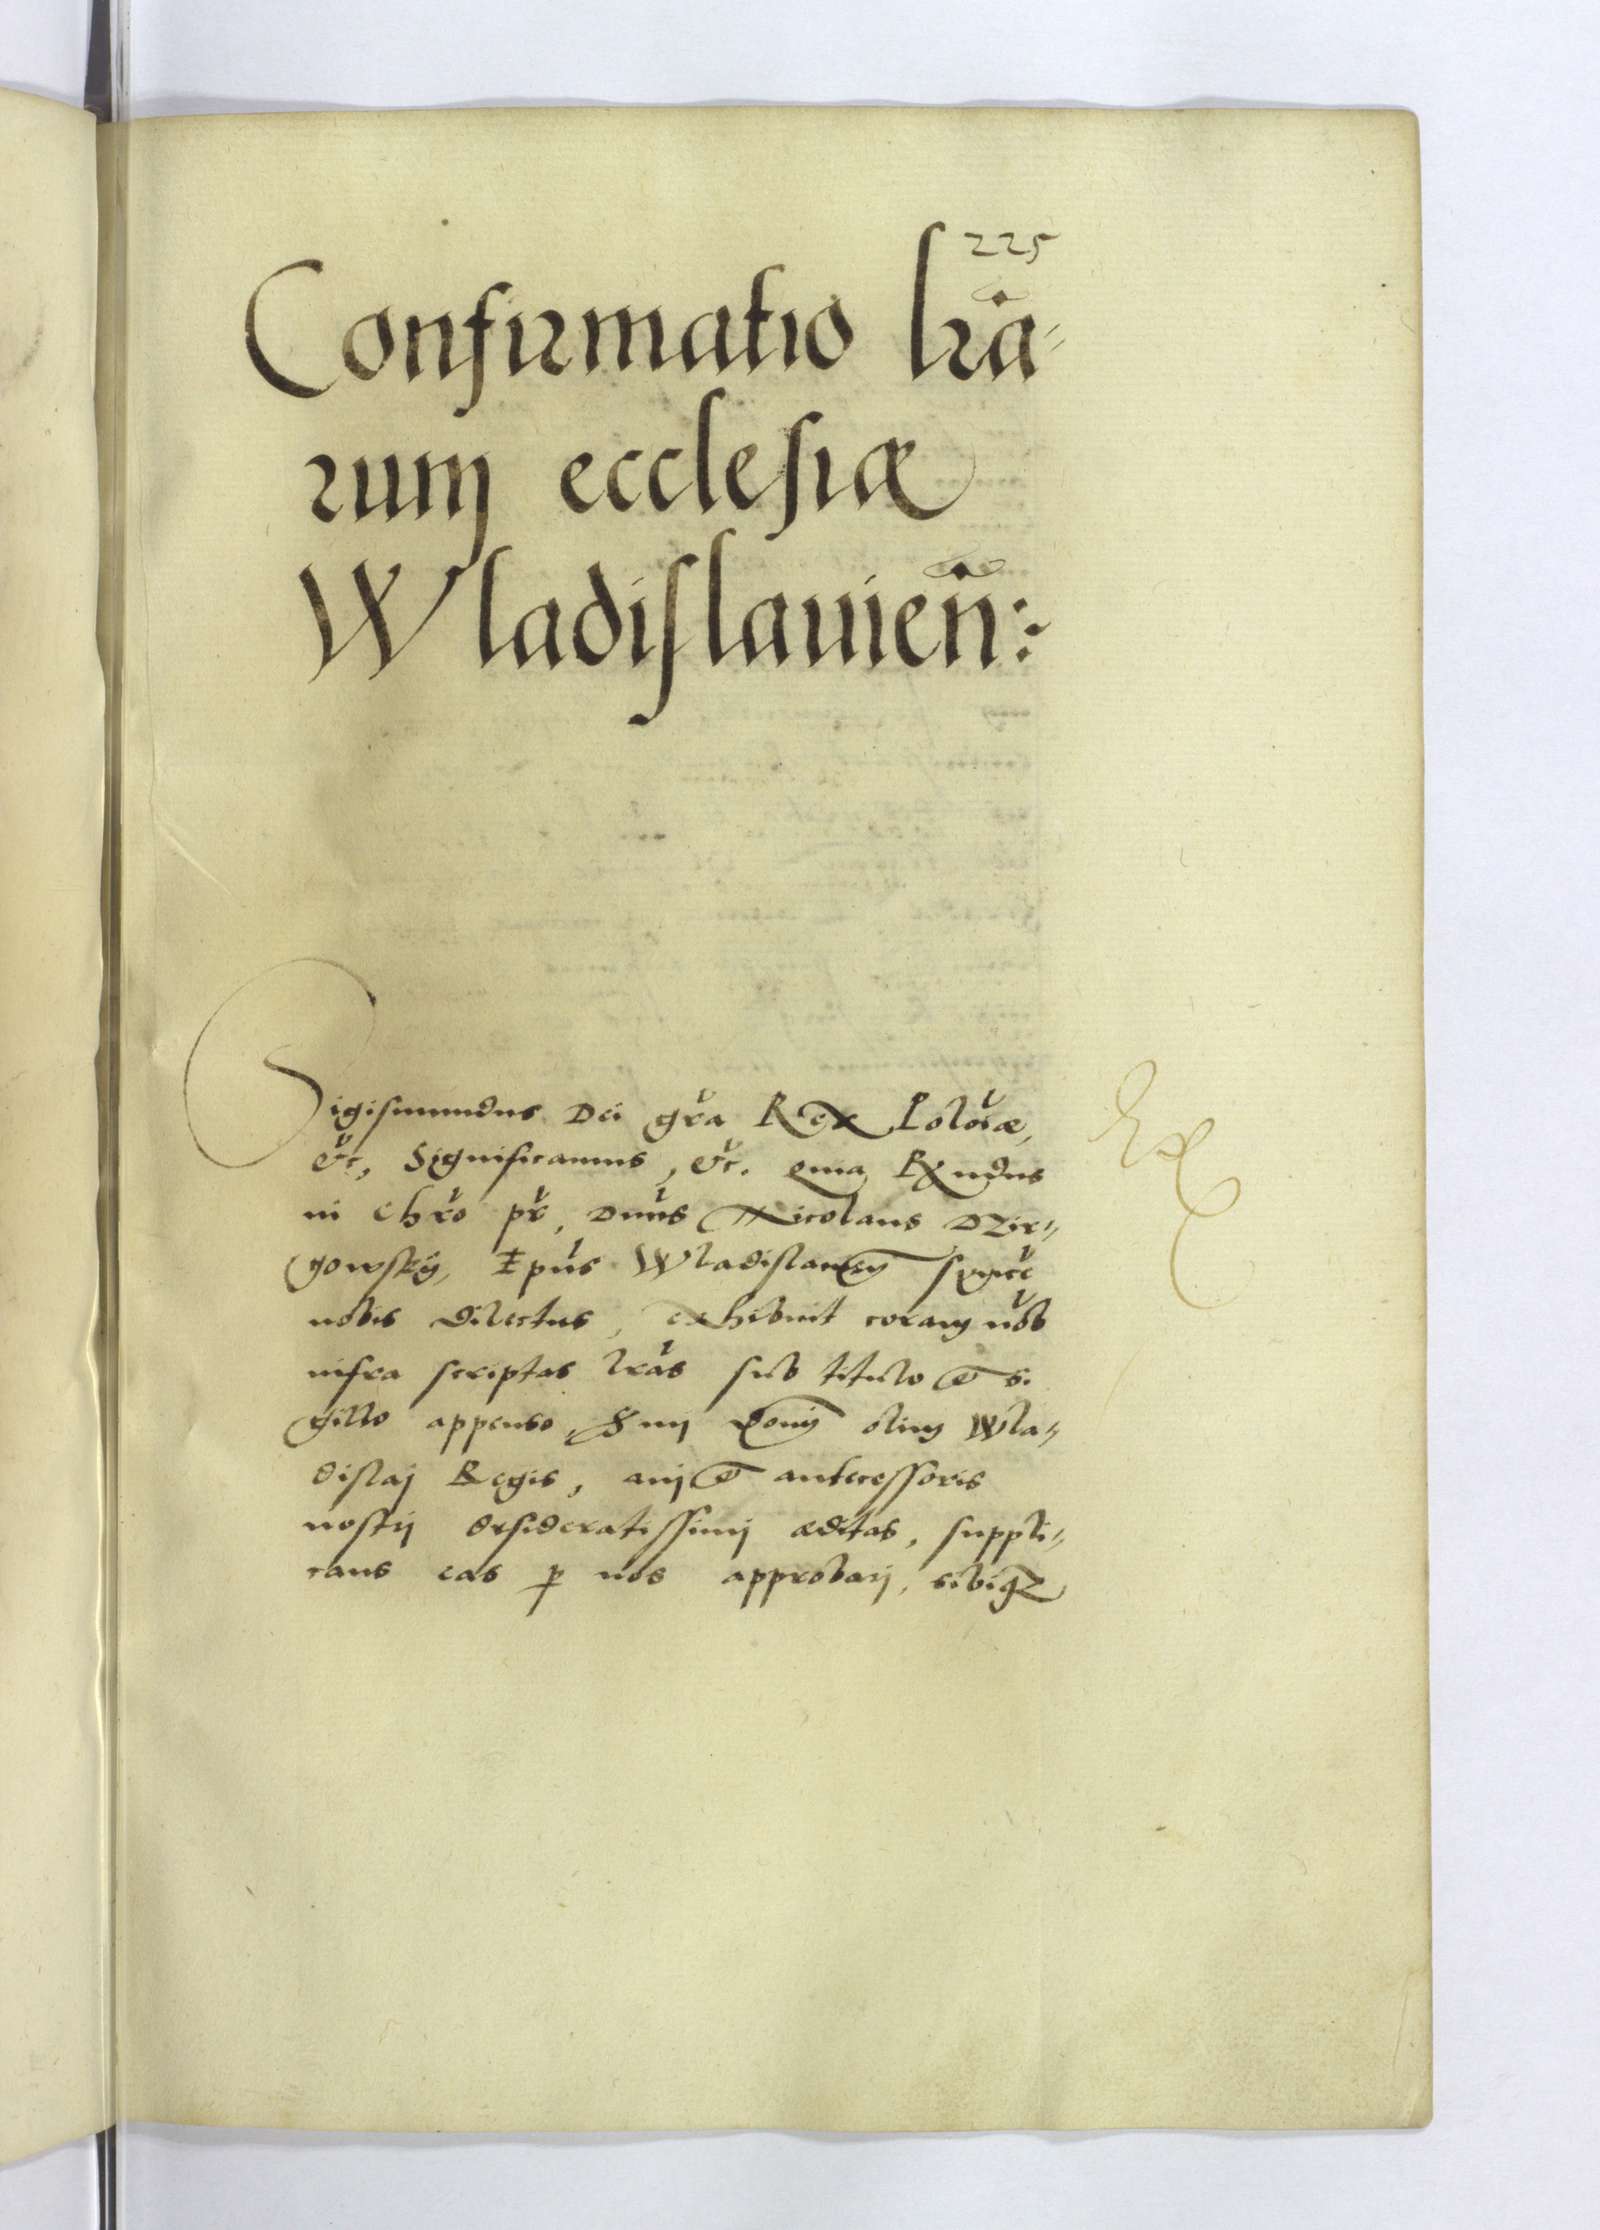 225
Confirmatio lr̃a-
rum ecclesiæ
Wladislauien̄:
Sigismundus Dei gr̃a Rex Polo͠iæ,
&c, Significamus, &c. quia Rx̃ndus
in Chr̃o pr̃, Dn̄us Nicolaus Dzir-
gowsky, Ep̃us Wladislauien̄ syncẽ
nobis dilectus, exhibuit coram nõb
infra scriptas lr̃as sub titulo et si
gillo appenso, Sm̄i d͠oni olim Wla-
dislaj Regis, auj et antecessoris
nostrj desideratissimj æditas, suppli-
cans eas ꝑ nos approbarj, sibiqꝫ
Ex